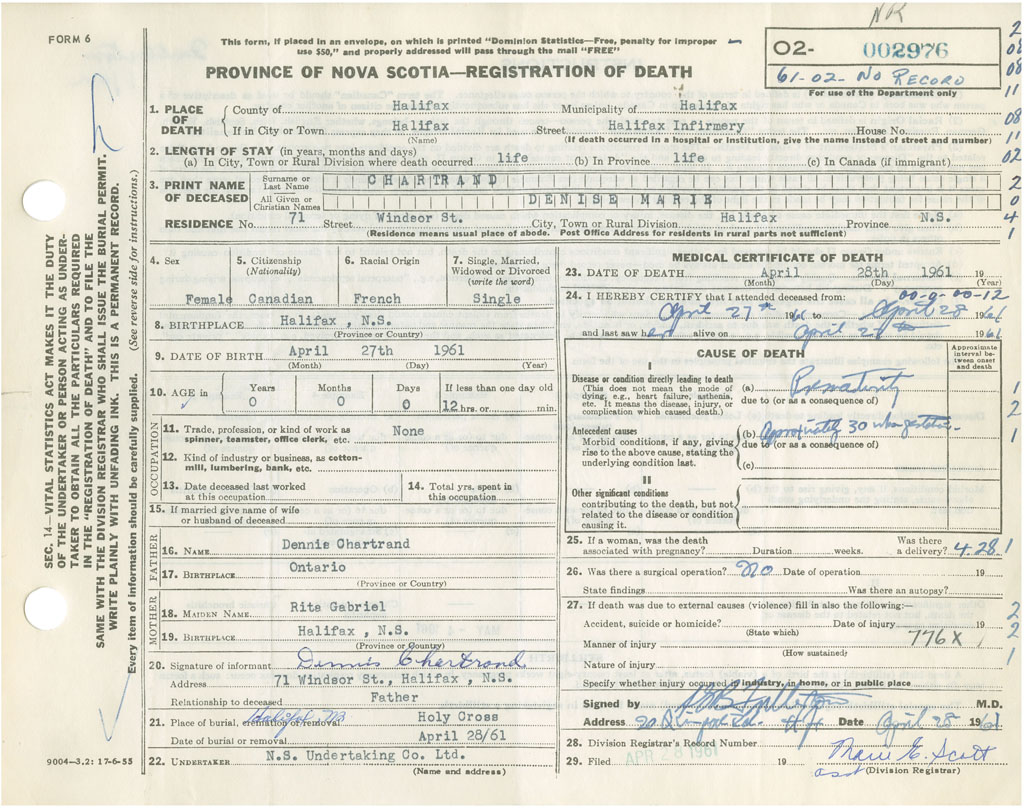 FORM 6
NR
This form, if placed in an envelope, on which is printed "Dominion Statistics—Free, penalty for improper use $50," and properly addressed will pass through the mail "FREE"
PROVINCE OF NOVA SCOTIA—REGISTRATION OF DEATH
02- 002976
61-02- No RECORD
For use of the Department only
1. PLACE OF DEATH
County of Halifax Municipality of Halifax
If in City or Town Halifax Street Halifax Infirmery House No.
(Name) (If death occurred in a hospital or institution, give the name instead of street and number)
2. LENGTH OF STAY (in years, months and days)
(a) In City, Town or Rural Division where death occurred life (b) In Province life (c) In Canada (if immigrant)
3. PRINT NAME OF DECEASED
Surname or Last Name CHARTRAND
All Given or Christian Names DENISE MARIE
RESIDENCE No. 71 Street Windsor St. City, Town or Rural Division Halifax Province N.S.
(Residence means usual place of abode. Post Office Address for residents in rural parts not sufficient)
4. Sex Female
5. Citizenship (Nationality) Canadian
6. Racial Origin French
7. Single, Married, Widowed or Divorced (write the word) Single
8. BIRTHPLACE Halifax , N.S.
(Province or Country)
9. DATE OF BIRTH April 27th 1961
(Month) (Day) (Year)
10. AGE in Years 0 Months 0 Days 0 If less than one day old 12 hrs. or min.
OCCUPATION
11. Trade, profession, or kind of work as spinner, teamster, office clerk, etc. None
12. Kind of industry or business, as cotton-mill, lumbering, bank, etc.
13. Date deceased last worked at this occupation
14. Total yrs. spent in this occupation
15. If married give name of wife or husband of deceased
FATHER
16. NAME Dennis Chartrand
17. BIRTHPLACE Ontario
(Province or Country)
MOTHER
18. MAIDEN NAME Rita Gabriel
19. BIRTHPLACE Halifax , N.S.
(Province or Country)
20. Signature of informant Dennis Chartrand
Address 71 Windsor St., Halifax , N.S.
Relationship to deceased Father
21. Place of burial, cremation or removal Holy Cross
Date of burial or removal April 28/61
22. UNDERTAKER N.S. Undertaking Co. Ltd.
(Name and address)
MEDICAL CERTIFICATE OF DEATH
23. DATE OF DEATH April 28th 1961 19
(Month) (Day) (Year)
24. I HEREBY CERTIFY that I attended deceased from: 00-0-00-12
April 27th 1961 to April 28 1961
and last saw her alive on April 1961
CAUSE OF DEATH
Approximate interval between onset and death
I
Disease or condition directly leading to death
(This does not mean the mode of dying, e.g., heart failure, asthenia, etc. It means the disease, injury, or complication which caused death.)
(a) Prematurity
due to (or as a consequence of)
Antecedent causes
Morbid conditions, if any, giving rise to the above cause, stating the underlying condition last.
(b) Approximately 30 wks gestation
due to (or as a consequence of)
(c)
II
Other significant conditions
contributing to the death, but not related to the disease or condition causing it.
25. If a woman, was the death associated with pregnancy? Duration weeks. Was there a delivery? 4.28.1
26. Was there a surgical operation? No Date of operation 19
State findings Was there an autopsy?
27. If death was due to external causes (violence) fill in also the following:—
Accident, suicide or homicide? Date of injury 19
(State which)
Manner of injury 776X
(How sustained)
Nature of injury
Specify whether injury occurred in industry, in home, or in public place
Signed by M.D.
Address Date April 28 1961
28. Division Registrar's Record Number
29. Filed APR 28 1961 19 Marie E. Scott
(Division Registrar)
SEC. 14—VITAL STATISTICS ACT MAKES IT THE DUTY OF THE UNDERTAKER OR PERSON ACTING AS UNDERTAKER TO OBTAIN ALL THE PARTICULARS REQUIRED IN THE "REGISTRATION OF DEATH" AND TO FILE THE SAME WITH THE DIVISION REGISTRAR WHO SHALL ISSUE THE BURIAL PERMIT.
WRITE PLAINLY WITH UNFADING INK. THIS IS A PERMANENT RECORD.
Every item of information should be carefully supplied. (See reverse side for instructions.)
9004—3.2: 17-6-55